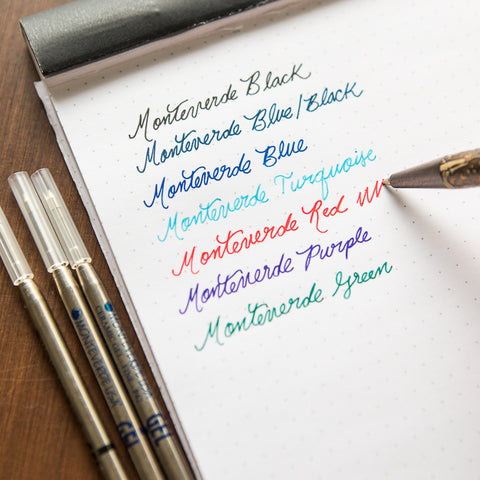 Monteverde Black
Monteverde Blue/Black
Monteverde Blue
Monteverde Turquoise
Monteverde Red
Monteverde Purple
Monteverde Green
MONTEVERDE USA
GEL
GEL